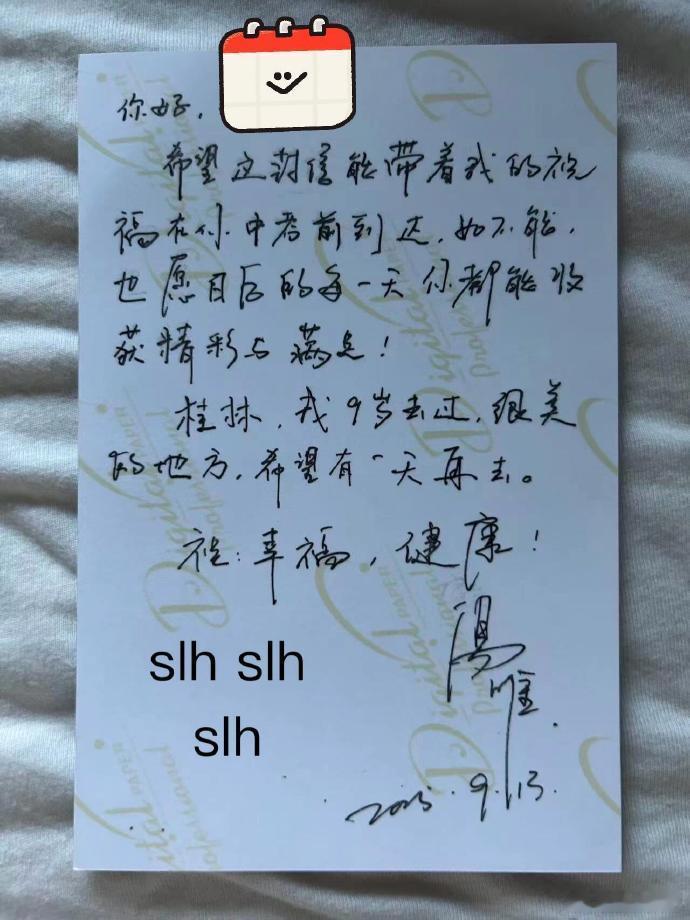 你好，
希望这封信能带着我的祝
福在你中考前到达，如不能，
也愿日后的每一天你都能收
获精彩与满点！
桂林，我9岁去过，很美
的地方，希望有一天再去。
祝：幸福，健康！
汤唯
9.13.
slh slh
slh
Digital PAPER
Professional